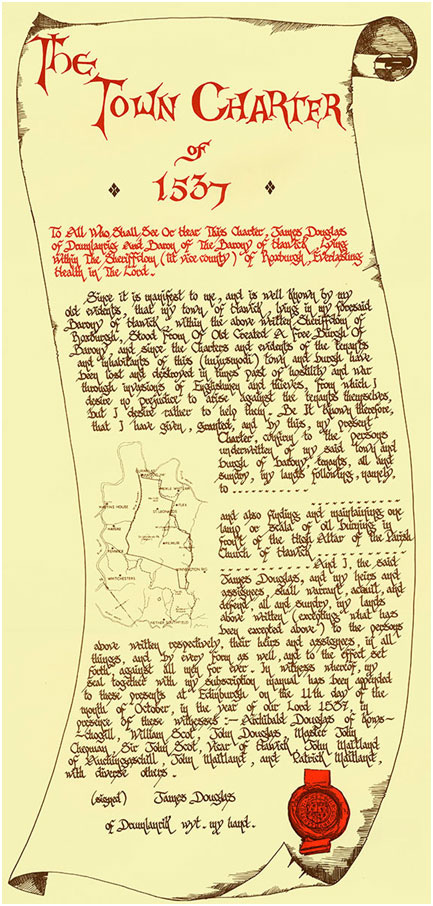 The
Town Charter
of
1537
To All Who Shall See Or Hear This Charter, James Douglas
of Drumlanrig And Baron of The Barony of Hawick Lying
Within The Sheriffdom (lit vice county) of Roxburgh, Everlasting
Health in The Lord.
Since it is manifest to me, and is well known by my
old evidents, that my town of Hawick, lying in my foresaid
Barony of Hawick, within the above written Sheriffdom of
Roxburgh, Stood From Of Old Created A Free Burgh Of
Barony, and since the Charters and evidents of the tenants
and inhabitants of this (hujusmodi) town and burgh have
been lost and destroyed in times past of hostility and war
through invasions of Englishmen and thieves, from which I
desire no prejudice to arise against the tenants themselves,
but I desire rather to help them. Be It Known therefore,
that I have given, granted, and by this, my present
Charter, confirm to the persons
underwritten of my said town and
burgh of barony, tenants, all and
sundry, my lands following, namely,
to
and also finding and maintaining one
lamp or scala of oil burning in
front of the High Altar of the Parish
Church of Hawick
And I, the said
James Douglas, and my heirs and
assignees shall warrant, acquit, and
defend all and sundry, my lands
above written (excepting what has
been excepted above) to the persons
above written respectively, their heirs and assignees, in all
things, and by every form as well, and to the effect set
forth, against all men for ever. In witness whereof, my
seal together with my subscription manual has been appended
to these presents at Edinburgh on the 11th day of the
month of October, in the year of our Lord 1537, in
presence of these witnesses :— Archibald Douglas of hows-
-chogill, William Scot, John Douglas Master John
Chepman, Sir John Scot, Vicar of Hawick, John Maitland
of Auchingaschill, John Maitland, and Patrick Maitland,
with diverse others.
(signed) James Douglas
of Drumlanrik wyt. my hand.
WHITCHESTERS
NETHER SOUTHFIELD